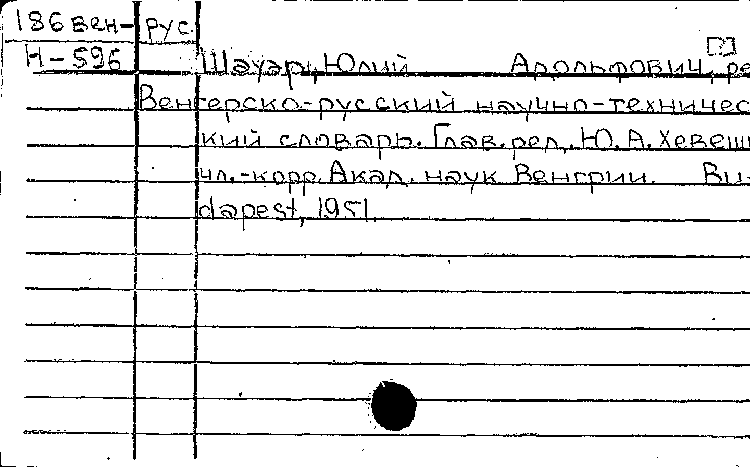 186 вен- рус.
Н-596
[?]
Шахар, Юлий Адольфович, ре
Венгерско-русский научно-техничес
кий словарь. Глав. ред. Ю. А. Хевеши
чл.-корр. Акад. наук Венгрии. Bu-
dapest, 1951.